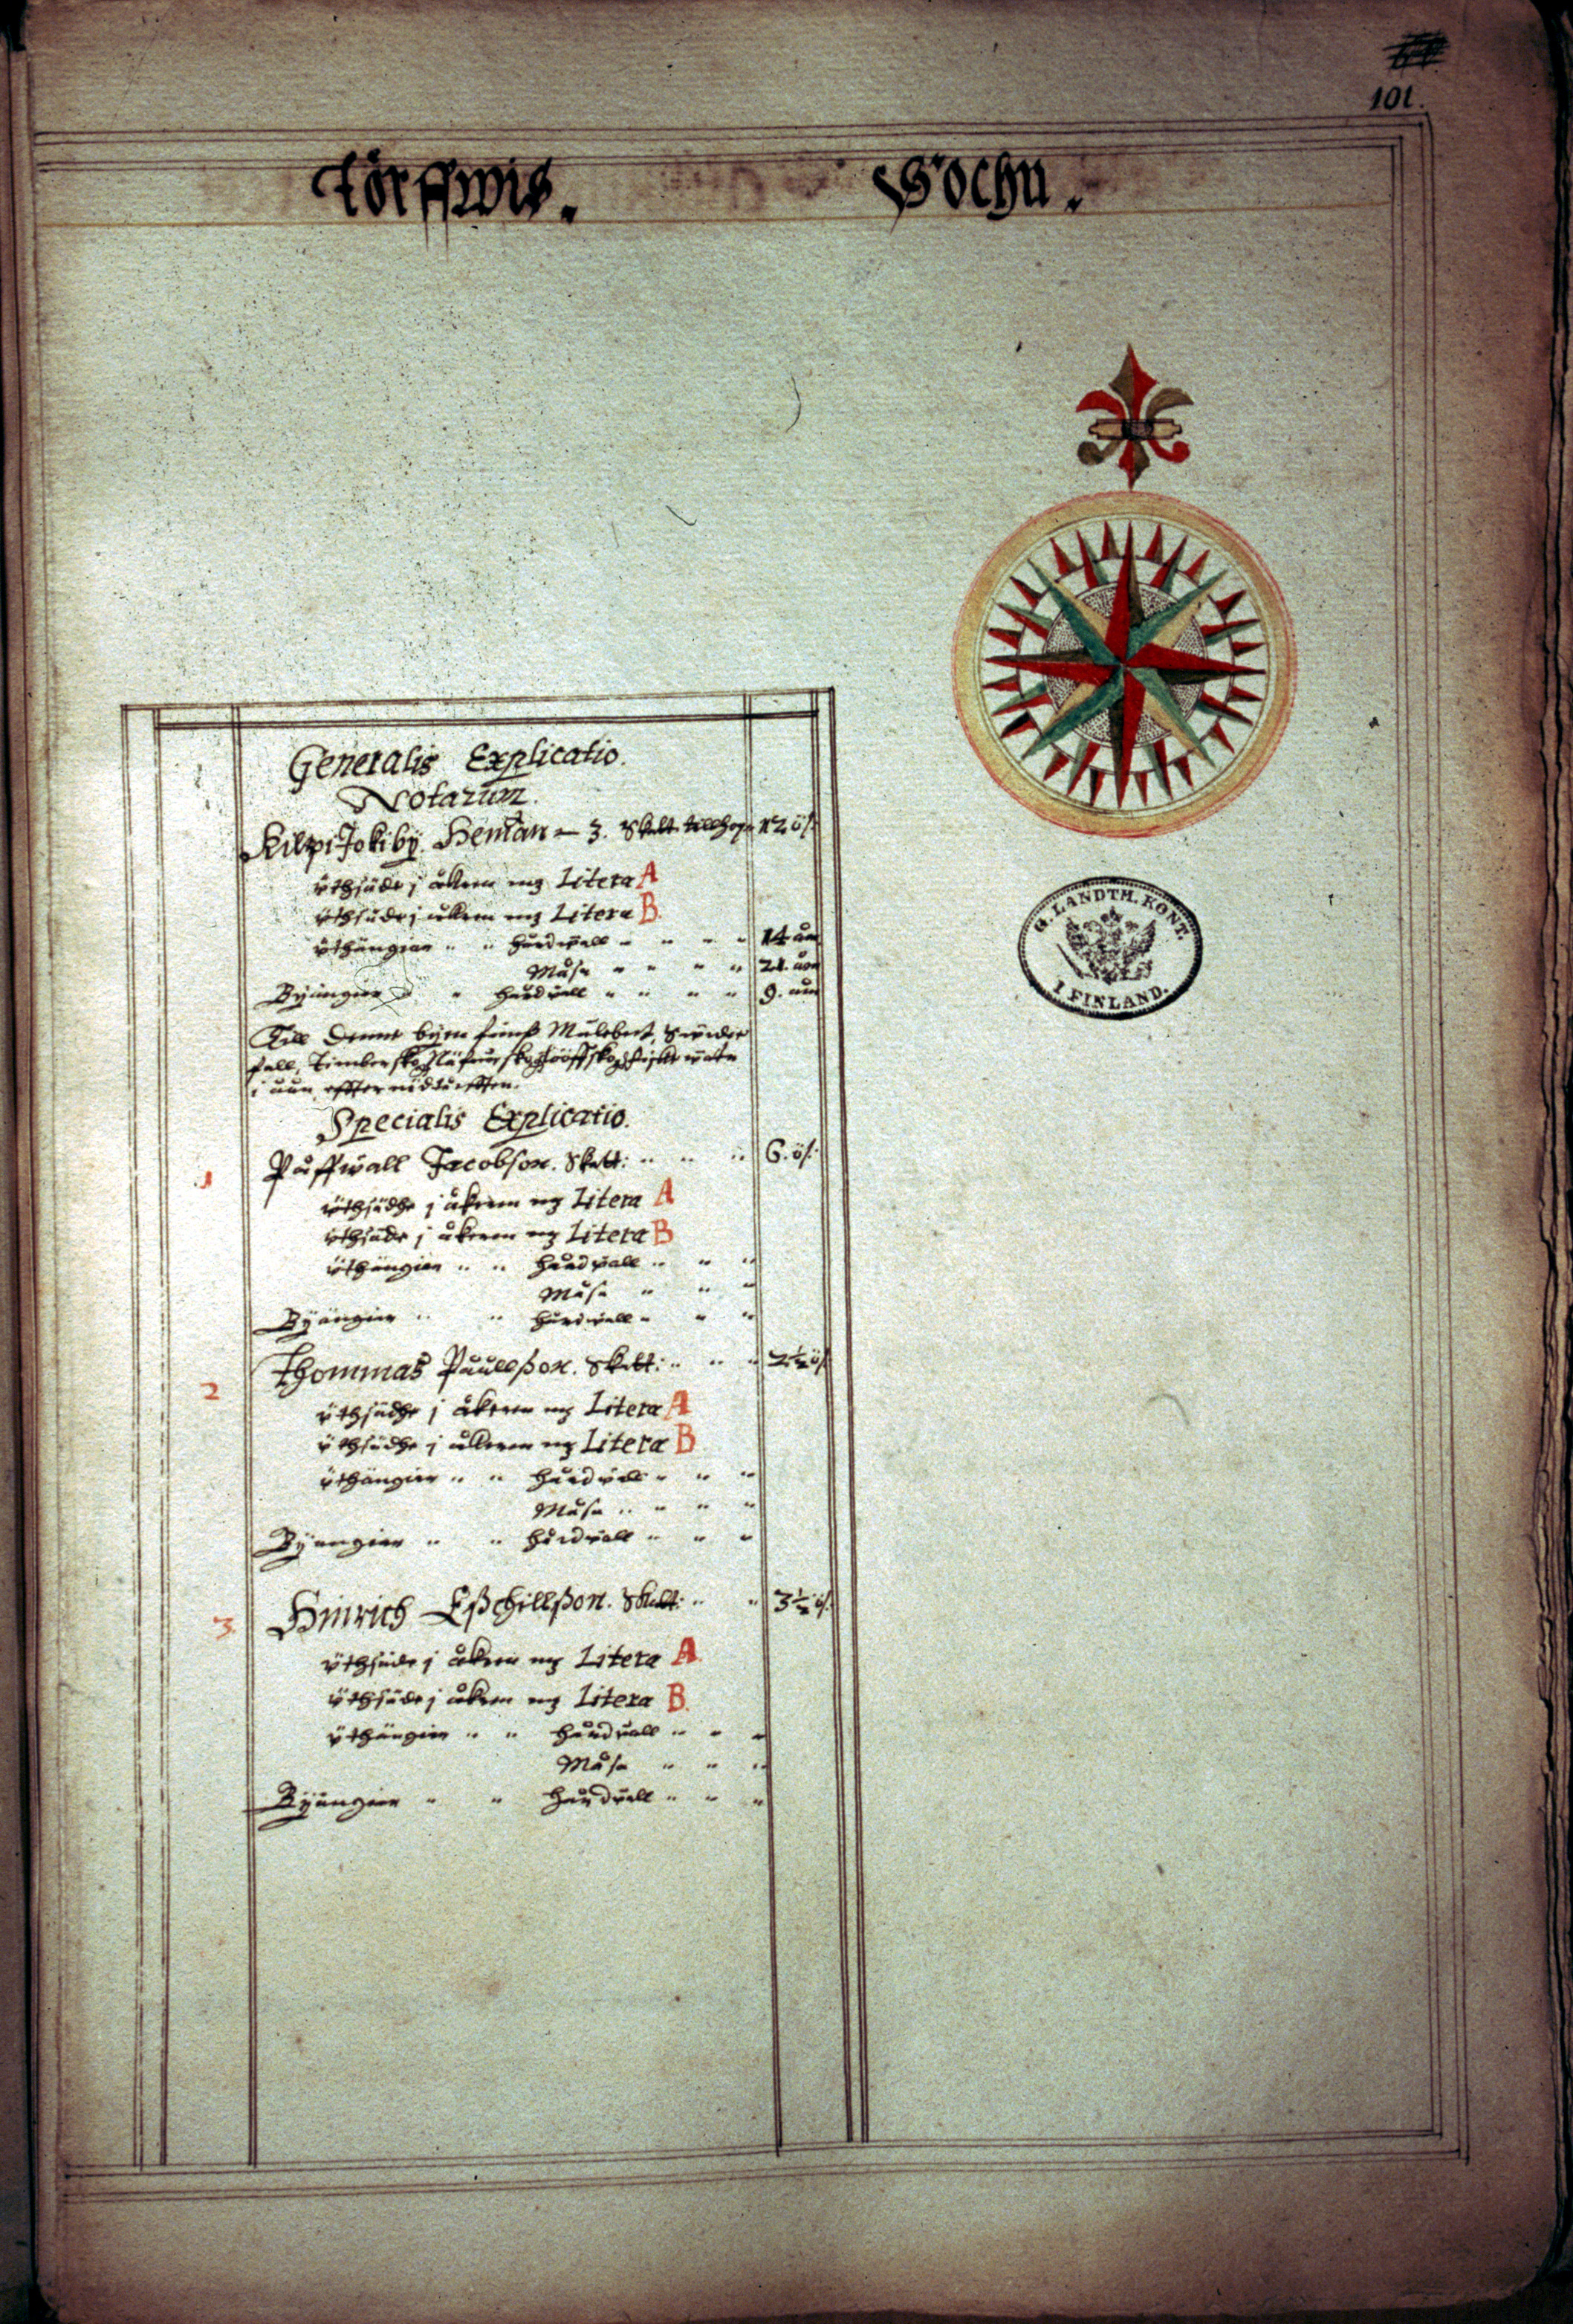 101.
Törffwis. Sochn.
Generalis Explicatio.
Notarum.
Kilpi Jokiby. Hemān – 3. Skatt tillhopa 12 ö/:
Vthsäde j åkren mz Litera A
Vthsäde j åkren mz Litera B.
Vthängier " " hårdvall " " " " 14
Måsa " " " " 21.
Byängier " hårdvall " " " " 9.
Till denne byen fins Mulebeet, Swidie
fall, Timberskog, Näfverskog, Lööfskog, fiskevatn
i åån effter nödturfften.
Specialis Explicatio.
1 Påffwall Jacobson. Skatt: " " " 6. ö/:
Vthsädhe j åkren mz Litera A
Vthsäde j åkeren mz Litera B
Vthängier " " hårdvall " " "
Måsa " " "
Byängier " " hårdvall " " "
2 Thommas Påullßon. Skatt: " " " 2½ ö/
Vthsädhe j åkeren mz Litera A
Vthsädhe j åkeren mz Litera B
Vthängier " " hårdvall " " "
Måsa " " " "
Byängier " " hårdvall " " "
3. Hinrich Eßchillßon. Skatt: " " 3½ ö/:
Vthsäde j åkren mz Litera A.
Vthsäde j åkren mz Litera B.
Vthängier " " hårdvall " " "
Måsa " " "
Byängier " " hårdvall " " "
G. LANDTM. KONT.
I FINLAND.